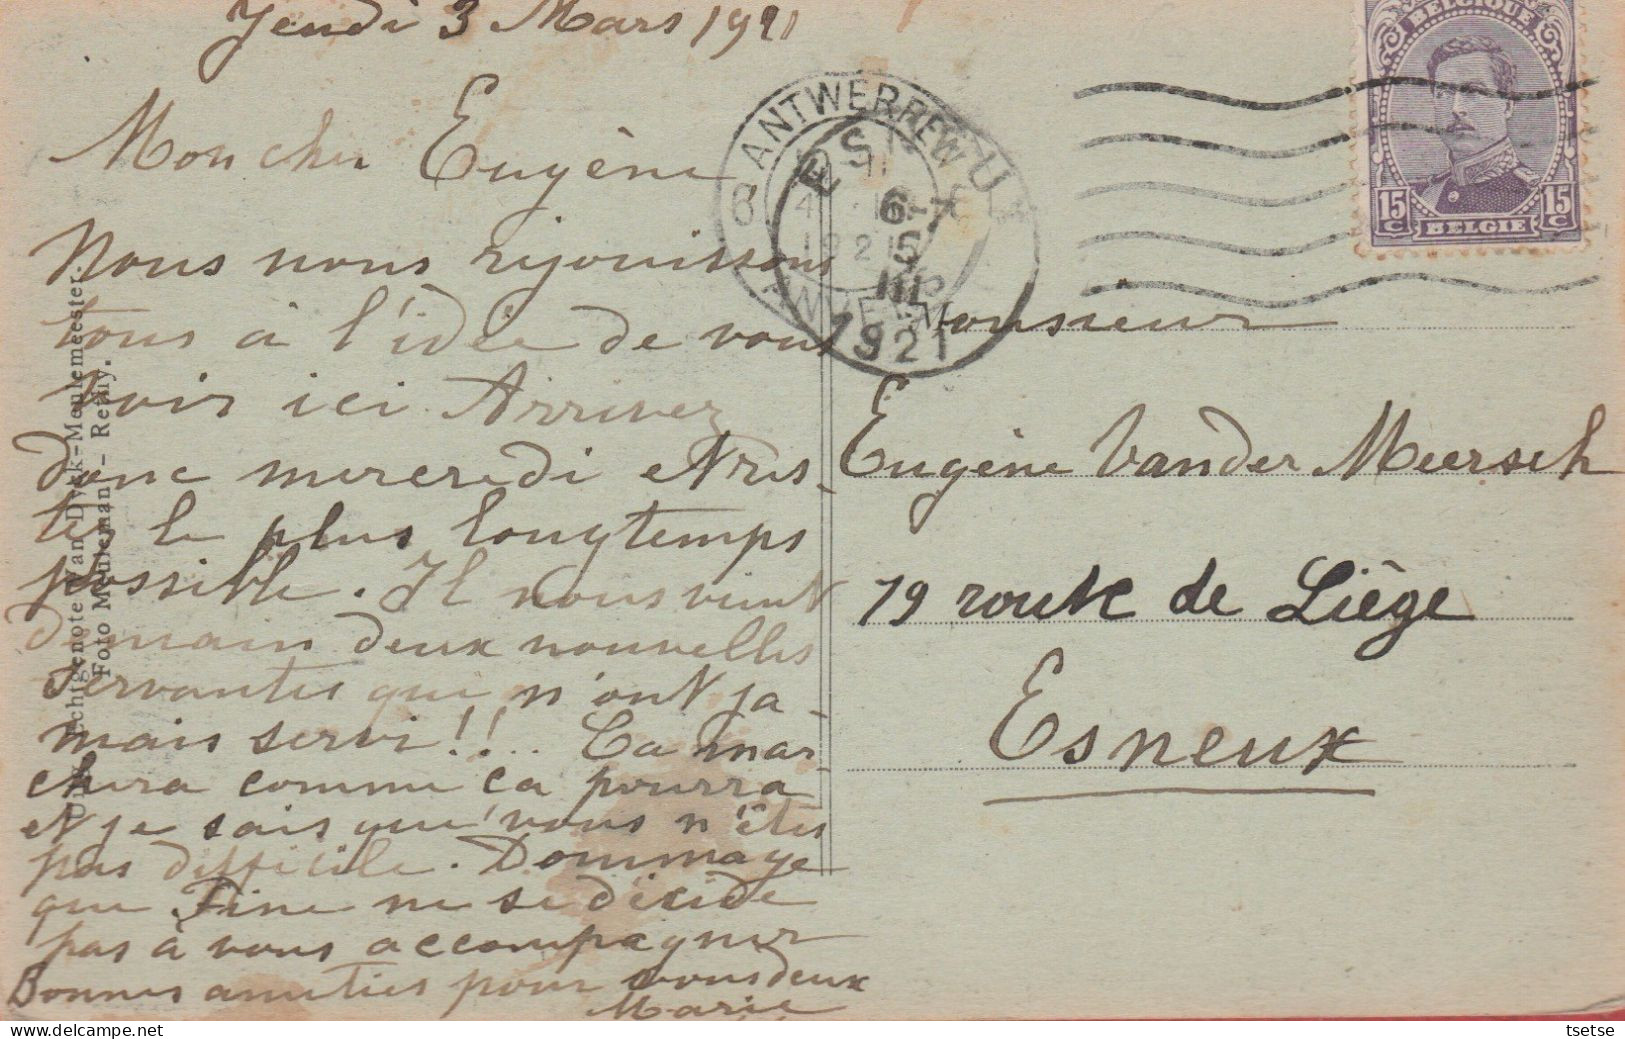 Jeudi 3 Mars 1921
Mon cher Eugène,
Nous nous rejouissons
tous à l'idée de vous
voir ici. Arrivez
donc mercredi et res-
tez le plus longtemps
possible. Il nous vient
demain deux nouvelles
servantes qui n'ont ja-
mais servi!!... Ca mar-
chera comme ca pourra
et je sais que vous n'êtes
pas difficile. Dommage
que Fine ne se décide
pas à vous accompagner
Bonnes amitiés pour vous deux
Marie
Uitg. Echtgenote Van Dyck-Meulemeester.
Foto Meuleman - Rethy.
ANTWERPEN
6
1921
ANVERS
ESNEUX
6
III
1921
BELGIQUE
15 C
15 C
BELGIE
Monsieur
Eugène VanderMeersch
79 route de Liège
Esneux
tsetse